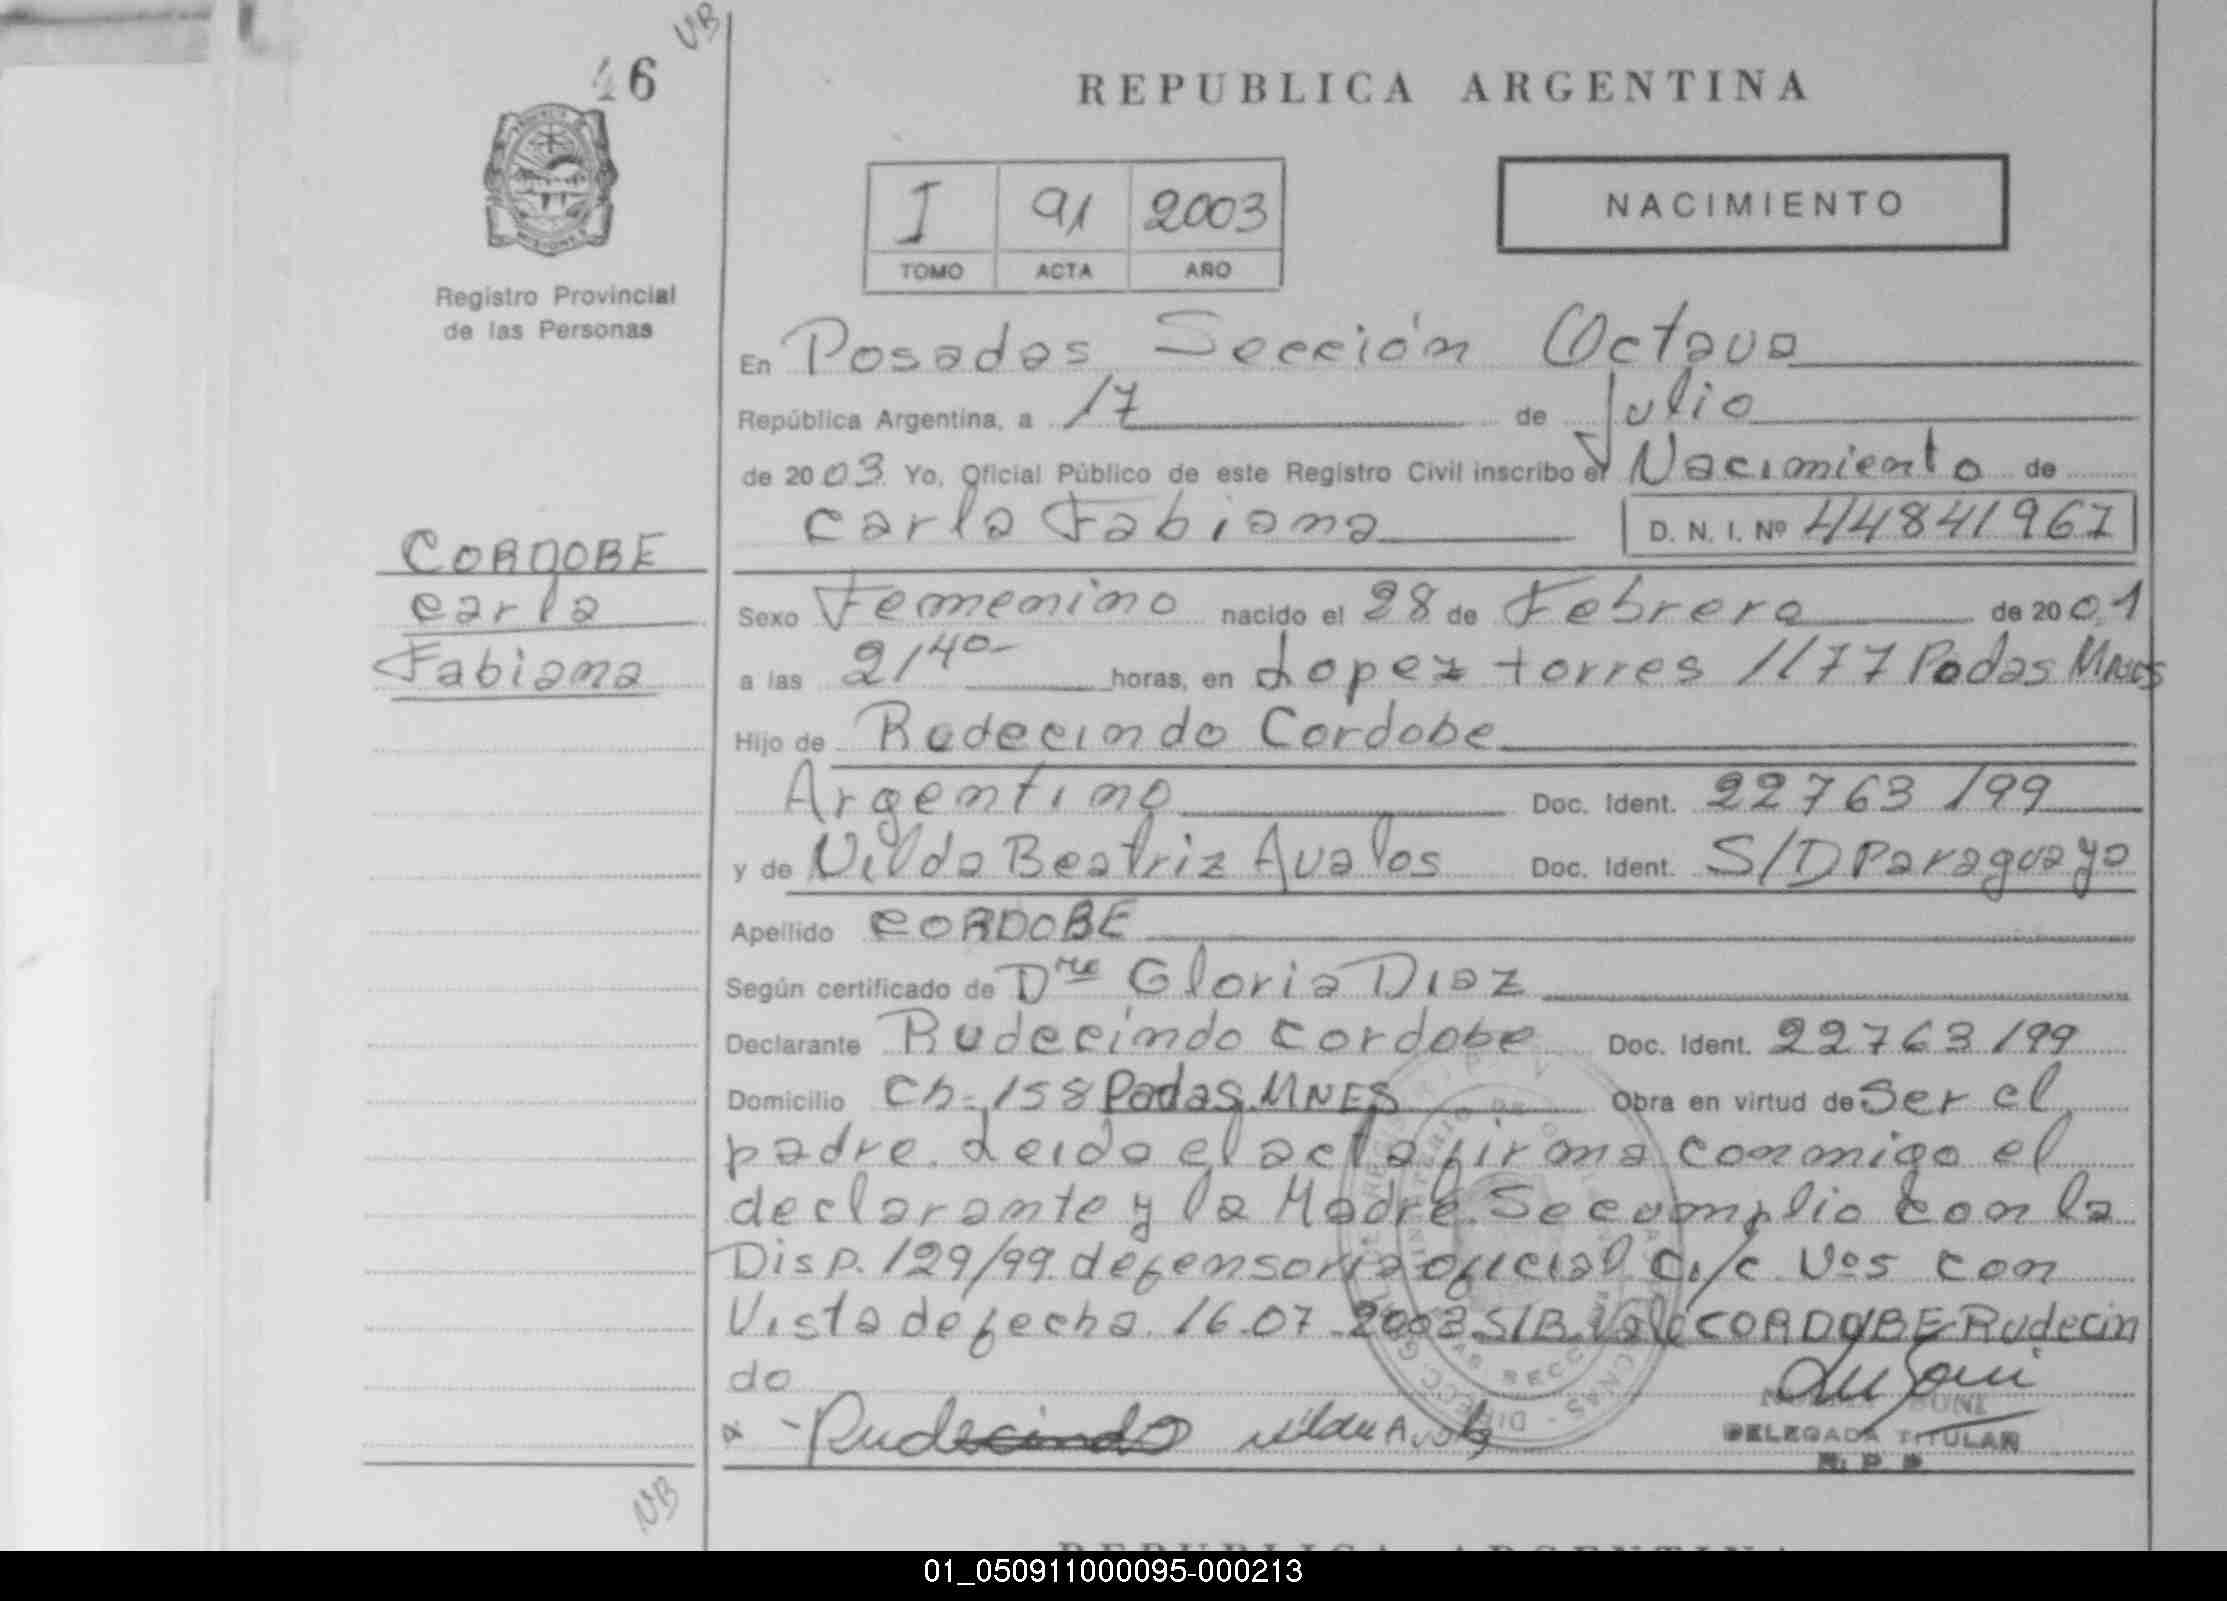 46
VB
REPUBLICA ARGENTINA
I 91 2003
TOMO ACTA AÑO
NACIMIENTO
Registro Provincial
de las Personas
En Posadas Sección Octava
República Argentina, a 17 de Julio
de 2003 Yo, Oficial Público de este Registro Civil inscribo el Nacimiento de
Carla Fabiana D. N. I. Nº 44841967
CORDOBE
Carla
Fabiana
Sexo Femenino nacido el 28 de Febrero de 2001
a las 21 40 horas, en Lopez torres 1177 Padas MNES
Hijo de Rudecindo Cordobe
Argentino Doc. Ident. 22763199
y de Nilda Beatriz Avalos Doc. Ident. S/D Paraguaya
Apellido CORDOBE
Según certificado de Dra Gloria Diaz
Declarante Rudecindo Cordobe Doc. Ident. 22763199
Domicilio Ch-158 Padas MNES Obra en virtud de Ser el
padre. Leida el acta firma conmigo el
declarante y la Madre. Se cumplio con la
Disp. 129/99 defensoria oficial
con
Vista de fecha 16.07.2003 S/B. Vale CORDOBE Rudecin
do
Rudecindo
DELEGADA TITULAR
R. P. P.
VB
REPUBLICA ARGENTINA
01_050911000095-000213